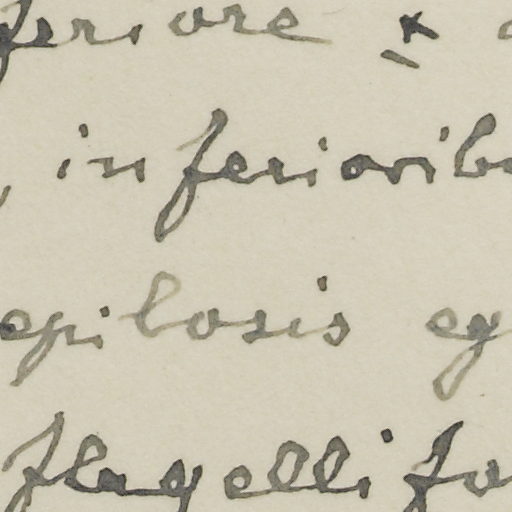 feriore ±
, inferiorib
epilosis eg
flagellifo